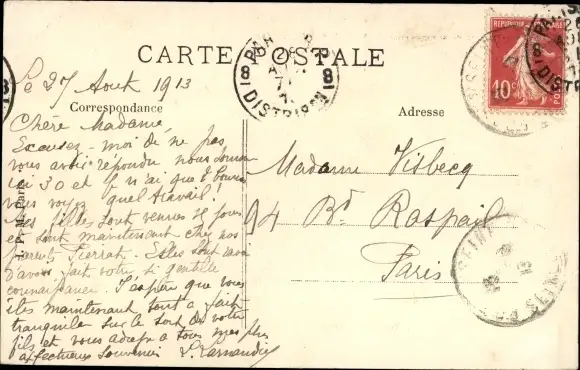 CARTE POSTALE
Le 27 Aout 1913
Correspondance
Adresse
Chère Madame,
Excusez-moi de ne pas
vous avoir répondu nous donnons
ici 30 et je n'ai que
vous voyez quel travail!
Mes filles sont venues 15 jours
et sont maintenant chez nos
parents. Elles sont
d'avoir fait votre si gentille
connaissance. J'espère que vous
êtes maintenant tout à fait
tranquille sur le sort de votre
fils et vous adresse à tous mes plus
affectueux souvenirs
Madame Visbecq
94 Bd Raspail
Paris
REPUBLIQUE
10c
POSTES
PARIS
8
8
DISTRIBON
PARIS
8
DISTRIB
SEINE
SEINE